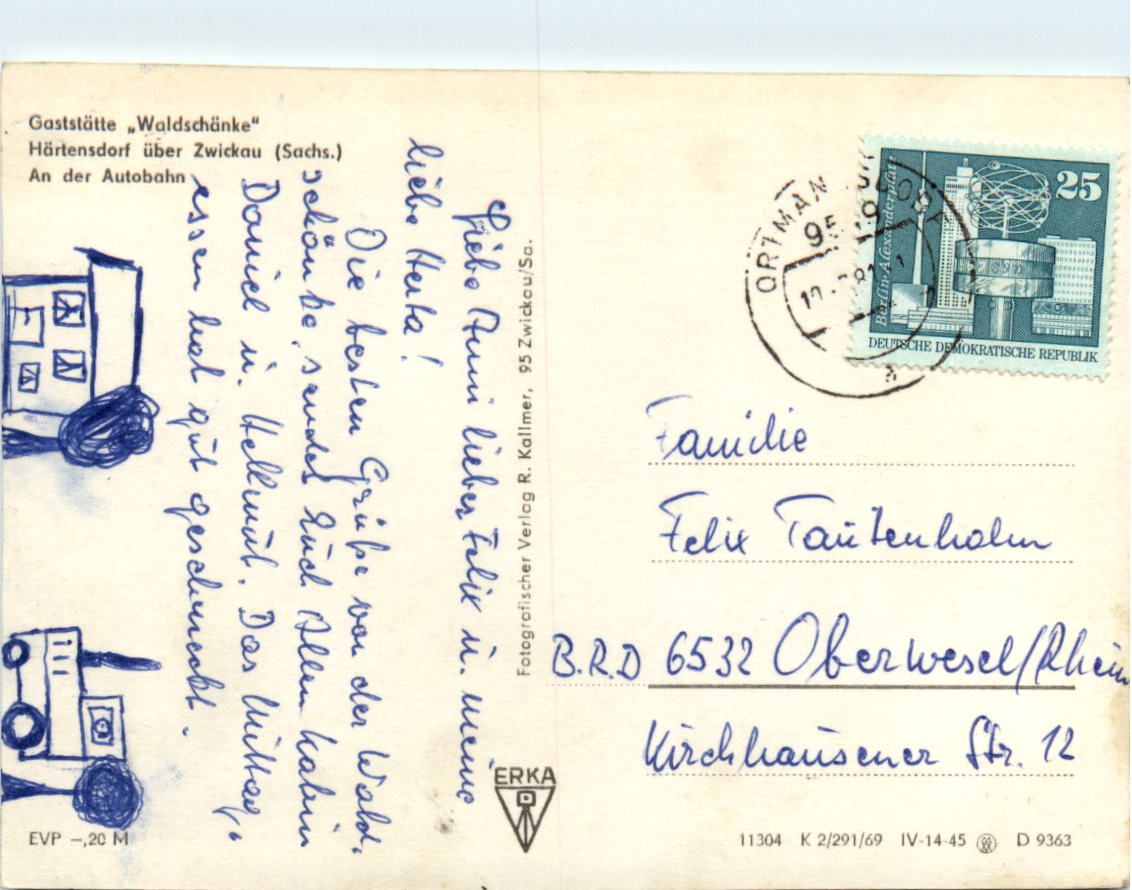 Gaststätte „Waldschänke"
Härtensdorf über Zwickau (Sachs.)
An der Autobahn
Liebe Anni lieber Felix u. meine
liebe Herta!
Die besten Grüße von der Wald-
schänke, sendet Euch Allen
Daniel u. Hellmut. Das Mittag-
essen hat gut geschmeckt.
Fotografischer Verlag R. Kallmer, 95 Zwickau/Sa.
ERKA
EVP –,20 M
25
Berlin-Alexanderplatz
DEUTSCHE DEMOKRATISCHE REPUBLIK
ORTMANNSDORF
Familie
Felix Tautenhahn
B.R.D 6532 Oberwesel/Rhein
Kirchhausener Str. 12
11304 K 2/291/69 IV-14-45 D 9363